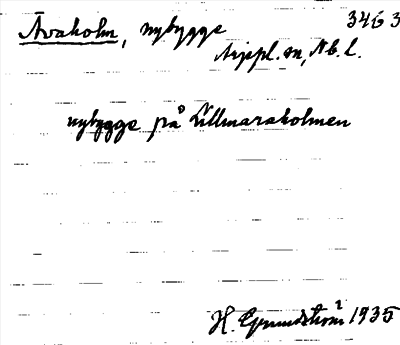 Avaholm, nybygge 3463
Arjepl. sn, Nb. l.
nybygge på Lillmaraholmen
H. Grundström 1935